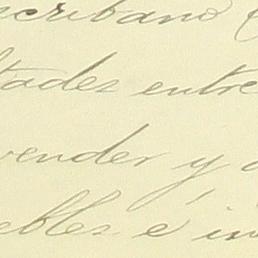 scribano
tades entre
vender y a
ebles é in